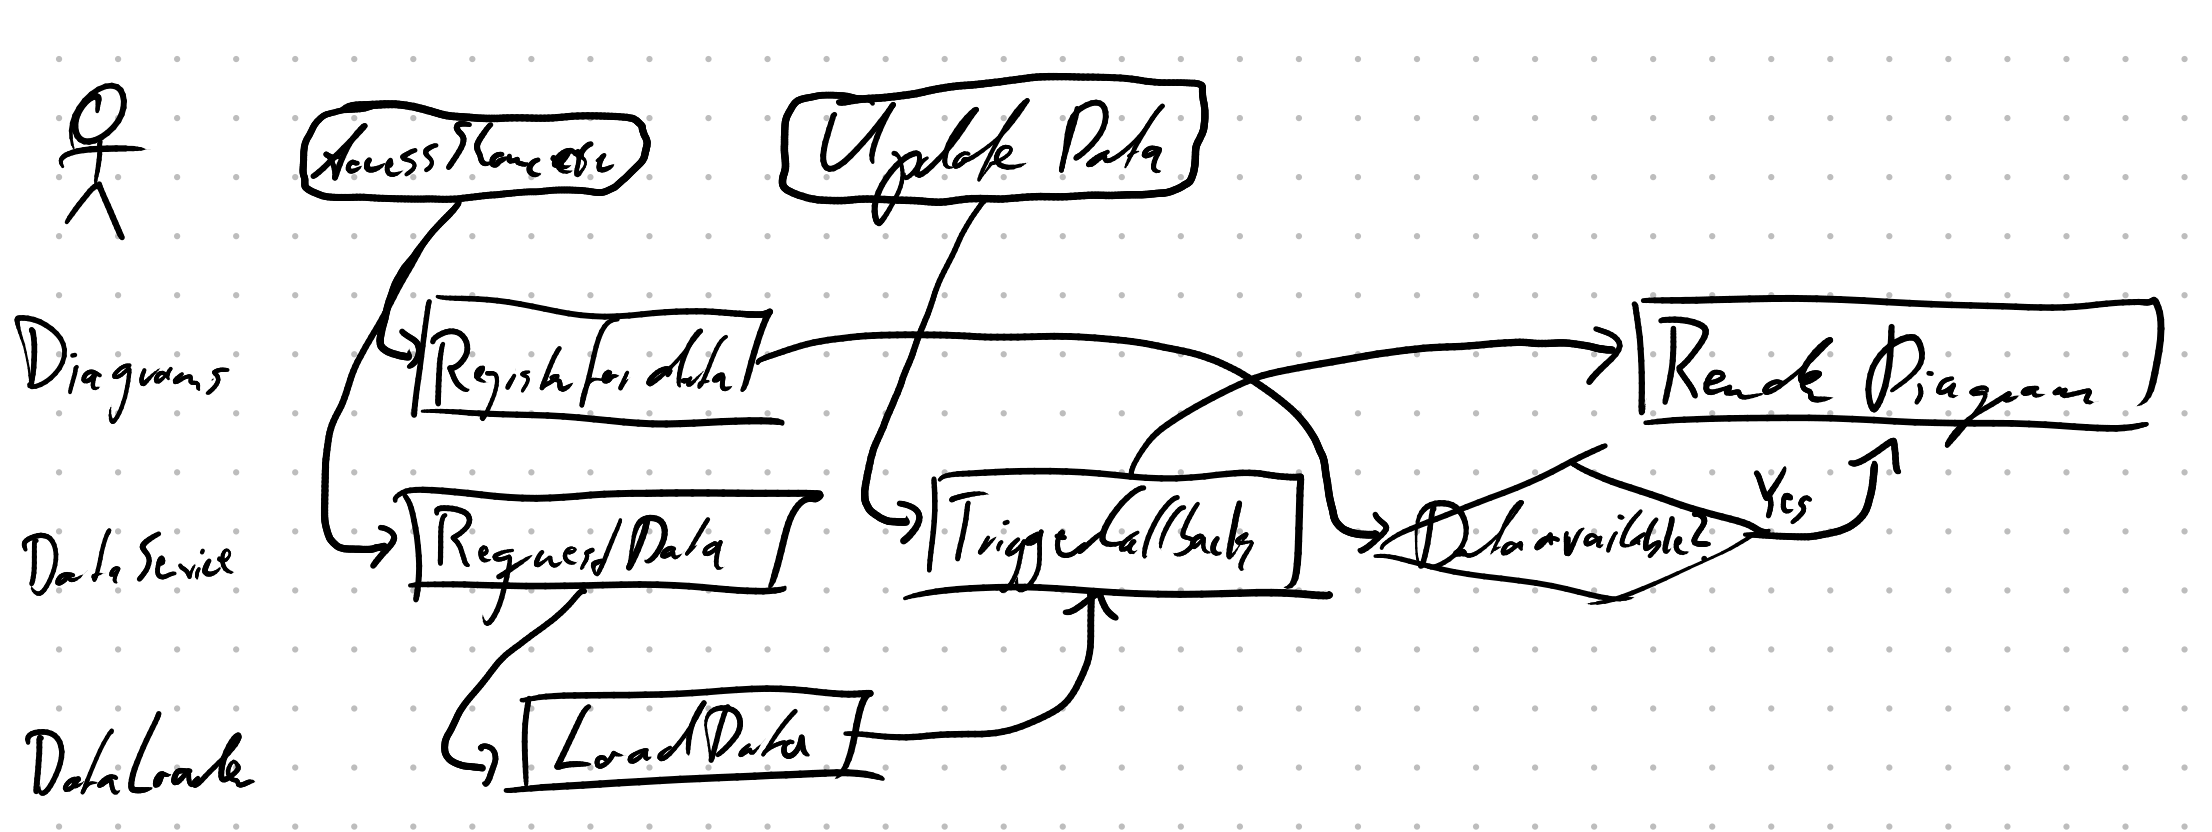 Access
Update Data
Diagrams
Register for data
Render Diagram
Data Service
Request Data
Trigger Callback
Data available?
Yes
DataLoader
Load Data